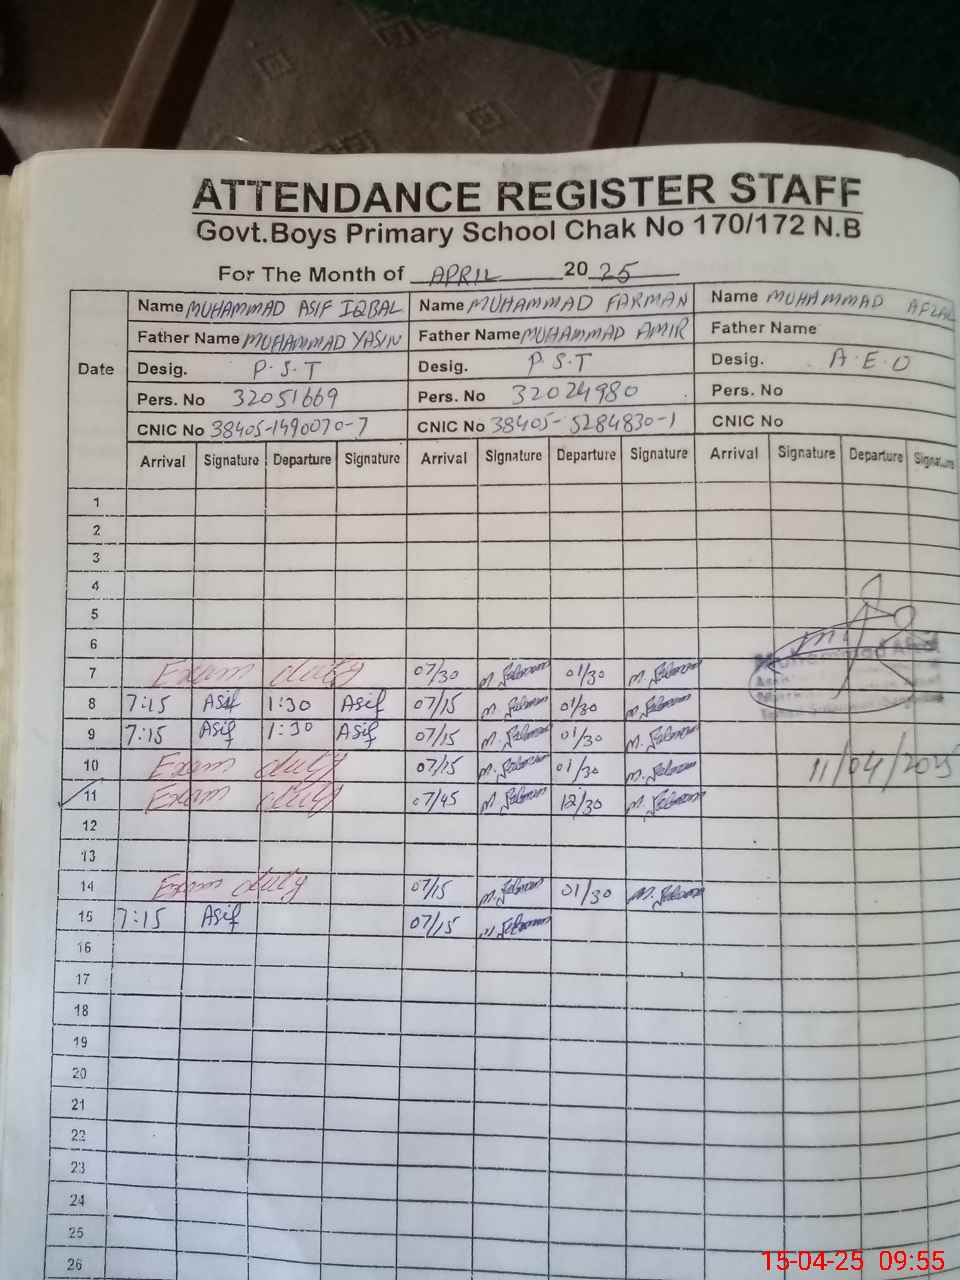 ATTENDANCE REGISTER STAFF
Govt.Boys Primary School Chak No 170/172 N.B
For The Month of APRIL 2025
Date
Name MUHAMMAD ASIF IQBAL Name MUHAMMAD FARMAN Name MUHAMMAD AFZAL
Father Name MUHAMMAD YASIN Father Name MUHAMMAD AMIR Father Name
Desig. P.S.T Desig. P.S.T Desig. A.E.O
Pers. No 32051669 Pers. No 32024980 Pers. No
CNIC No 38405-1490070-7 CNIC No 38405-5284830-1 CNIC No
Arrival Signature Departure Signature Arrival Signature Departure Signature Arrival Signature Departure Signature
1
2
3
4
5
6
7 Exam duty 07/30 01/30 Muhammad
8 7:15 Asif 1:30 Asif 07/15 01/30
9 7:15 Asif 1:30 Asif 07/15 01/30
10 Exam duty 07/15 01/30 11/04/2025
11 Exam duty 07/45 12/30
12
13
14 Exam duty 07/15 01/30
15 7:15 Asif 07/15
16
17
18
19
20
21
22
23
24
25
26
15-04-25 09:55